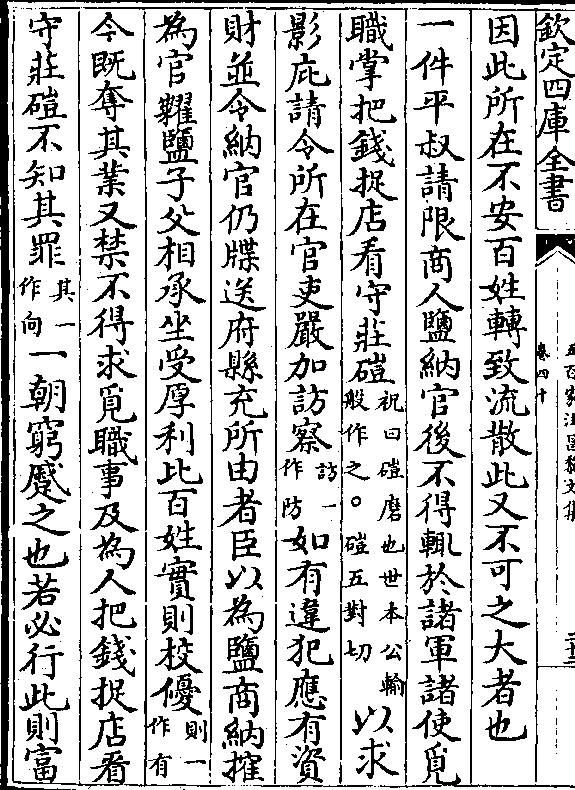 欽定四庫全書
五百家注昌黎文集
卷四十
因此所在不安百姓轉致流散此又不可之大者也
一件平叔請限商人鹽納官後不得輒於諸軍諸使覓
職掌把錢捉店看守莊磑祝曰磑磨也世本公輸般作之○磑五對切以求
影庇請令所在官吏嚴加訪察訪一作防如有違犯應有資
財並令納官仍牒送府縣充所由者臣以為鹽商納榷
為官糶鹽子父相承坐受厚利比百姓實則校優則一作有
今既奪其業又禁不得求覓職事及為人把錢捉店看
守莊磑不知其罪其一作向一朝窮蹙之也若必行此則富